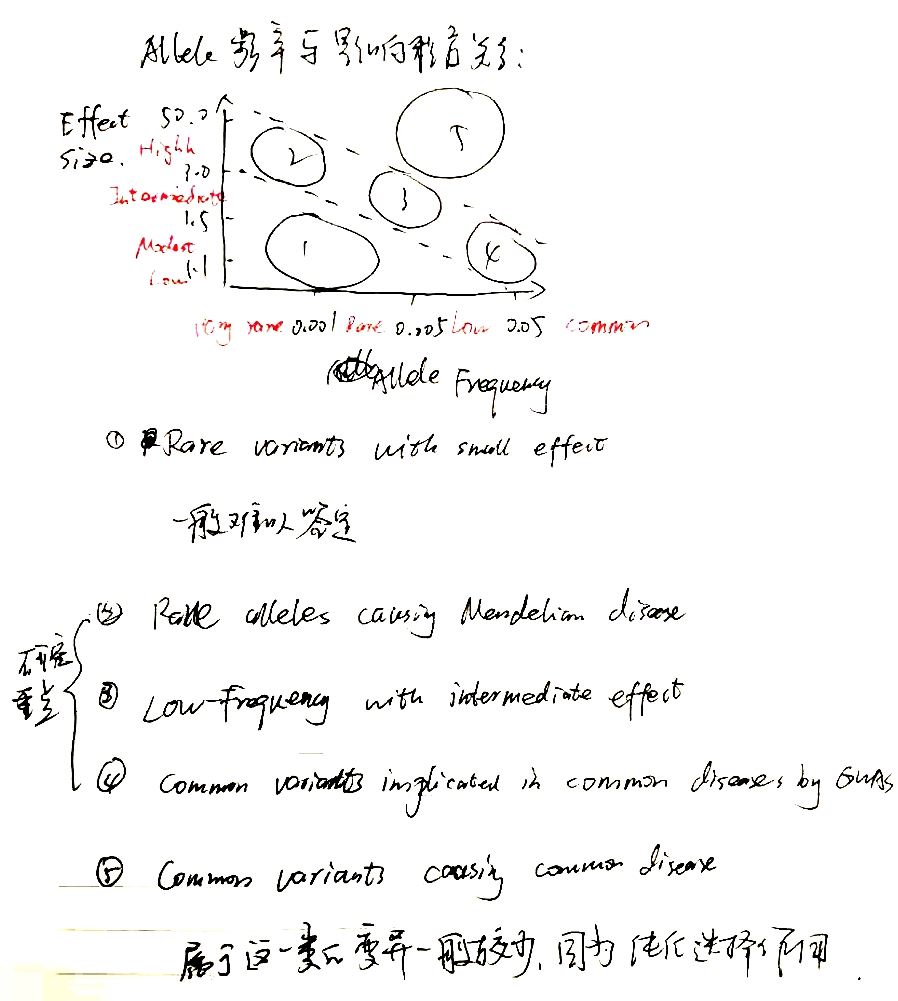 Allele 频率与影响程度关系:
Effect size.
50.0
Highh
3.0
Intermediate
1.5
Modest
1.1
Low
1
2
3
4
5
very rare 0.001 Rare 0.005 Low 0.05 common
Allele Frequency
① Rare variants with small effect
一般难以鉴定
研究重点
② Rare alleles causing Mendelian disease
③ Low-Frequency with intermediate effect
④ Common variants implicated in common diseases by GWAs
⑤ Common variants causing common disease
属于这一类的变异一般较少,因为 纯化选择作用.